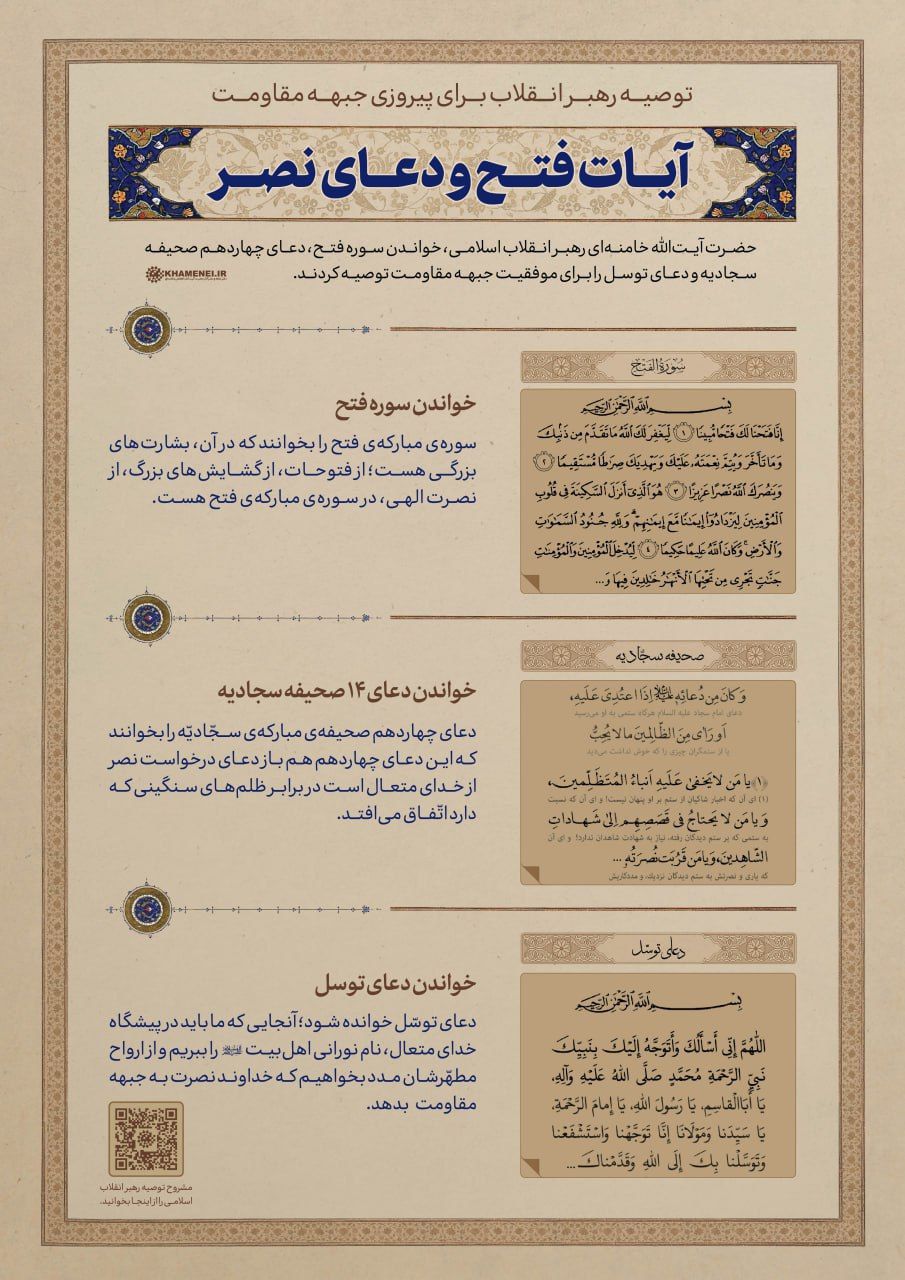 توصیه رهبر انقلاب برای پیروزی جبهه مقاومت
آیات فتح و دعای نصر
حضرت آیت‌الله خامنه‌ای رهبر انقلاب اسلامی، خواندن سوره فتح، دعای چهاردهم صحیفه
سجادیه و دعای توسل را برای موفقیت جبهه مقاومت توصیه کردند.
KHAMENEI.IR
سُورَةُ الفَتْحِ
بِسْمِ اللَّهِ الرَّحْمَٰنِ الرَّحِيمِ
إِنَّا فَتَحْنَا لَكَ فَتْحًا مُّبِينًا ﴿١﴾ لِّيَغْفِرَ لَكَ اللَّهُ مَا تَقَدَّمَ مِن ذَنۢبِكَ
وَمَا تَأَخَّرَ وَيُتِمَّ نِعْمَتَهُۥ عَلَيْكَ وَيَهْدِيَكَ صِرَٰطًا مُّسْتَقِيمًا ﴿٢﴾
وَيَنصُرَكَ اللَّهُ نَصْرًا عَزِيزًا ﴿٣﴾ هُوَ الَّذِىٓ أَنزَلَ السَّكِينَةَ فِى قُلُوبِ
الْمُؤْمِنِينَ لِيَزْدَادُوٓا۟ إِيمَٰنًا مَّعَ إِيمَٰنِهِمْ ۗ وَلِلَّهِ جُنُودُ السَّمَٰوَٰتِ
وَالْأَرْضِ ۚ وَكَانَ اللَّهُ عَلِيمًا حَكِيمًا ﴿٤﴾ لِّيُدْخِلَ الْمُؤْمِنِينَ وَالْمُؤْمِنَٰتِ
جَنَّٰتٍ تَجْرِى مِن تَحْتِهَا الْأَنْهَٰرُ خَٰلِدِينَ فِيهَا وَ...
خواندن سوره فتح
سوره‌ی مبارکه‌ی فتح را بخوانند که در آن، بشارت‌های
بزرگی هست؛ از فتوحات، از گشایش‌های بزرگ، از
نصرت الهی، در سوره‌ی مبارکه‌ی فتح هست.
صحیفه سجّادیه
وَ كانَ مِن دُعائِهِ عَلَيْهِ السَّلام إِذَا اعتُدِىَ عَلَيهِ،
دعای امام سجاد علیه السلام هرگاه ستمی به او می‌رسید
أَو رَأى مِنَ الظّالِمينَ ما لا يُحِبُّ
یا از ستمگران چیزی را که خوش نداشت می‌دید
﴿۱﴾ يا مَن لا يَخفى عَلَيهِ أَنباءُ المُتَظَلِّمينَ،
(۱) ای آن که اخبار شاکیان از ستم بر او پنهان نیست! و ای آن که نسبت
وَ يا مَن لا يَحتاجُ فى قَصَصِهِم إِلى شَهاداتِ
به ستمی که بر ستم دیدگان رفته، نیاز به شهادت شاهدان ندارد! و ای آن
الشّاهِدينَ، وَ يا مَن قَرُبَت نُصرَتُهُ ...
که یاری و نصرتش به ستم دیدگان نزدیک، و مددکاریش
خواندن دعای ۱۴ صحیفه سجادیه
دعای چهاردهم صحیفه‌ی مبارکه‌ی سجّادیّه را بخوانند
که این دعای چهاردهم هم باز دعای درخواست نصر
از خدای متعال است در برابر ظلم‌های سنگینی که
دارد اتّفاق می‌افتد.
دعای توسل
بِسْمِ اللَّهِ الرَّحْمَٰنِ الرَّحِيمِ
اَللّٰهُمَّ إِنّى أَسْأَلُكَ وَأَتَوَجَّهُ إِلَيْكَ بِنَبِيِّكَ
نَبِيِّ الرَّحْمَةِ مُحَمَّدٍ صَلَّى اللهُ عَلَيْهِ وَآلِهِ،
يَا أَبَا الْقَاسِمِ، يَا رَسُولَ اللهِ، يَا إِمامَ الرَّحْمَةِ،
يَا سَيِّدَنا وَمَوْلَانَا إِنَّا تَوَجَّهْنا وَاسْتَشْفَعْنا
وَتَوَسَّلْنا بِكَ إِلَى اللهِ وَقَدَّمْناكَ ...
خواندن دعای توسل
دعای توسّل خوانده شود؛ آنجایی که ما باید در پیشگاه
خدای متعال، نام نورانی اهل‌بیت علیهم‌السلام را ببریم و از ارواح
مطهّرشان مدد بخواهیم که خداوند نصرت به جبهه
مقاومت بدهد.
مشروح توصیه رهبر انقلاب
اسلامی را از اینجا بخوانید.